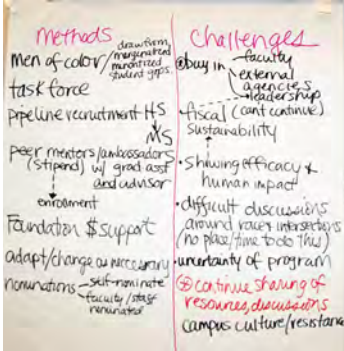 methods
men of color/
draw from
marginalized
minoritized
student grps.
task force
pipeline recruitment HS
MS
peer mentors/ambassadors
(stipend) w/ grad asst
and advisor
enrollment
Foundation $ support
adapt/change as necessary
nominations
self-nominate
faculty/staff
nominated
challenges
buy in
faculty
external
agencies
leadership
fiscal (can't continue)
sustainability
• Showing efficacy &
human impact
• difficult discussions
around race & intersections
(no place/time to do this)
• uncertainty of program
continue sharing of
resources, discussions
campus culture/resistance